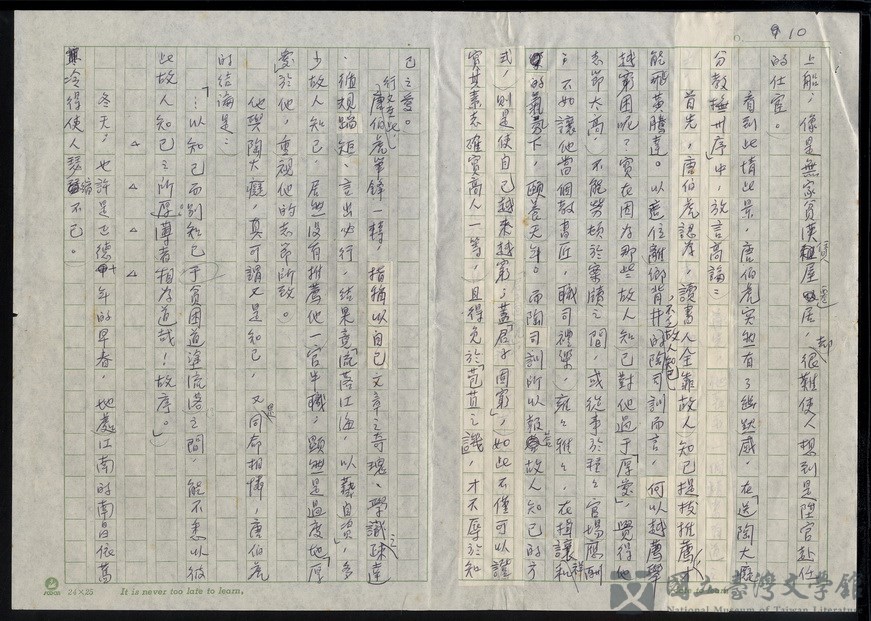 10
上船，像是無家貧漢租屋遷居，卻很難使人想到是陞官赴任
的仕宦。
看到此情此景，唐伯虎突然有了幽默感，在「送陶大癡
分教撫州序」中，放言高論：
首先，唐伯虎認為，讀書人全靠故人知己提拔推薦，才
能飛黃騰達。以這位離鄉背井的陶司訓而言，不乏故人知己，何以越薦舉
越窮困呢？實在因為那些故人知己對他過于「厚愛」，覺得他
志節太高，不能勞頓於案牘之間，或從事於種種官場應酬
；不如讓他當個教書匠，職司禮樂，雍雍雅雅，在揖讓和祥
的氣氛下，頤養天年。而陶司訓所以報答故人知己的方
式，則是使自己越來越窮；蓋「君子固窮」，如此不僅可以證
實其素志確實高人一等，且得免於「苞苴之譏」，才不辱於知
己之愛。
行文至此，唐伯虎筆鋒一轉，指稱以自己文章之奇瑰、學識之疎達
、循規蹈矩、言出必行，結果竟「流落江海，以藝自資」，多
少故人知己，居然沒有推薦他一官半職，顯然是過度地「厚
愛」於他，重視他的志節所致。
他與陶大癡，真可謂又是知己，又是同命相憐，唐伯虎
的結論是：
「…以知己而別知己于貧困道塗流落之間，能不悉以彼
此故人知己之所厚薄者相為道哉！故序。」
△ △ △ △
冬天，也許是正德九年的早春，地處江南的南昌依舊
寒冷得使人瑟縮不已。
24×25
It is never too late to learn.
國立臺灣文學館
National Museum of Taiwan Literature